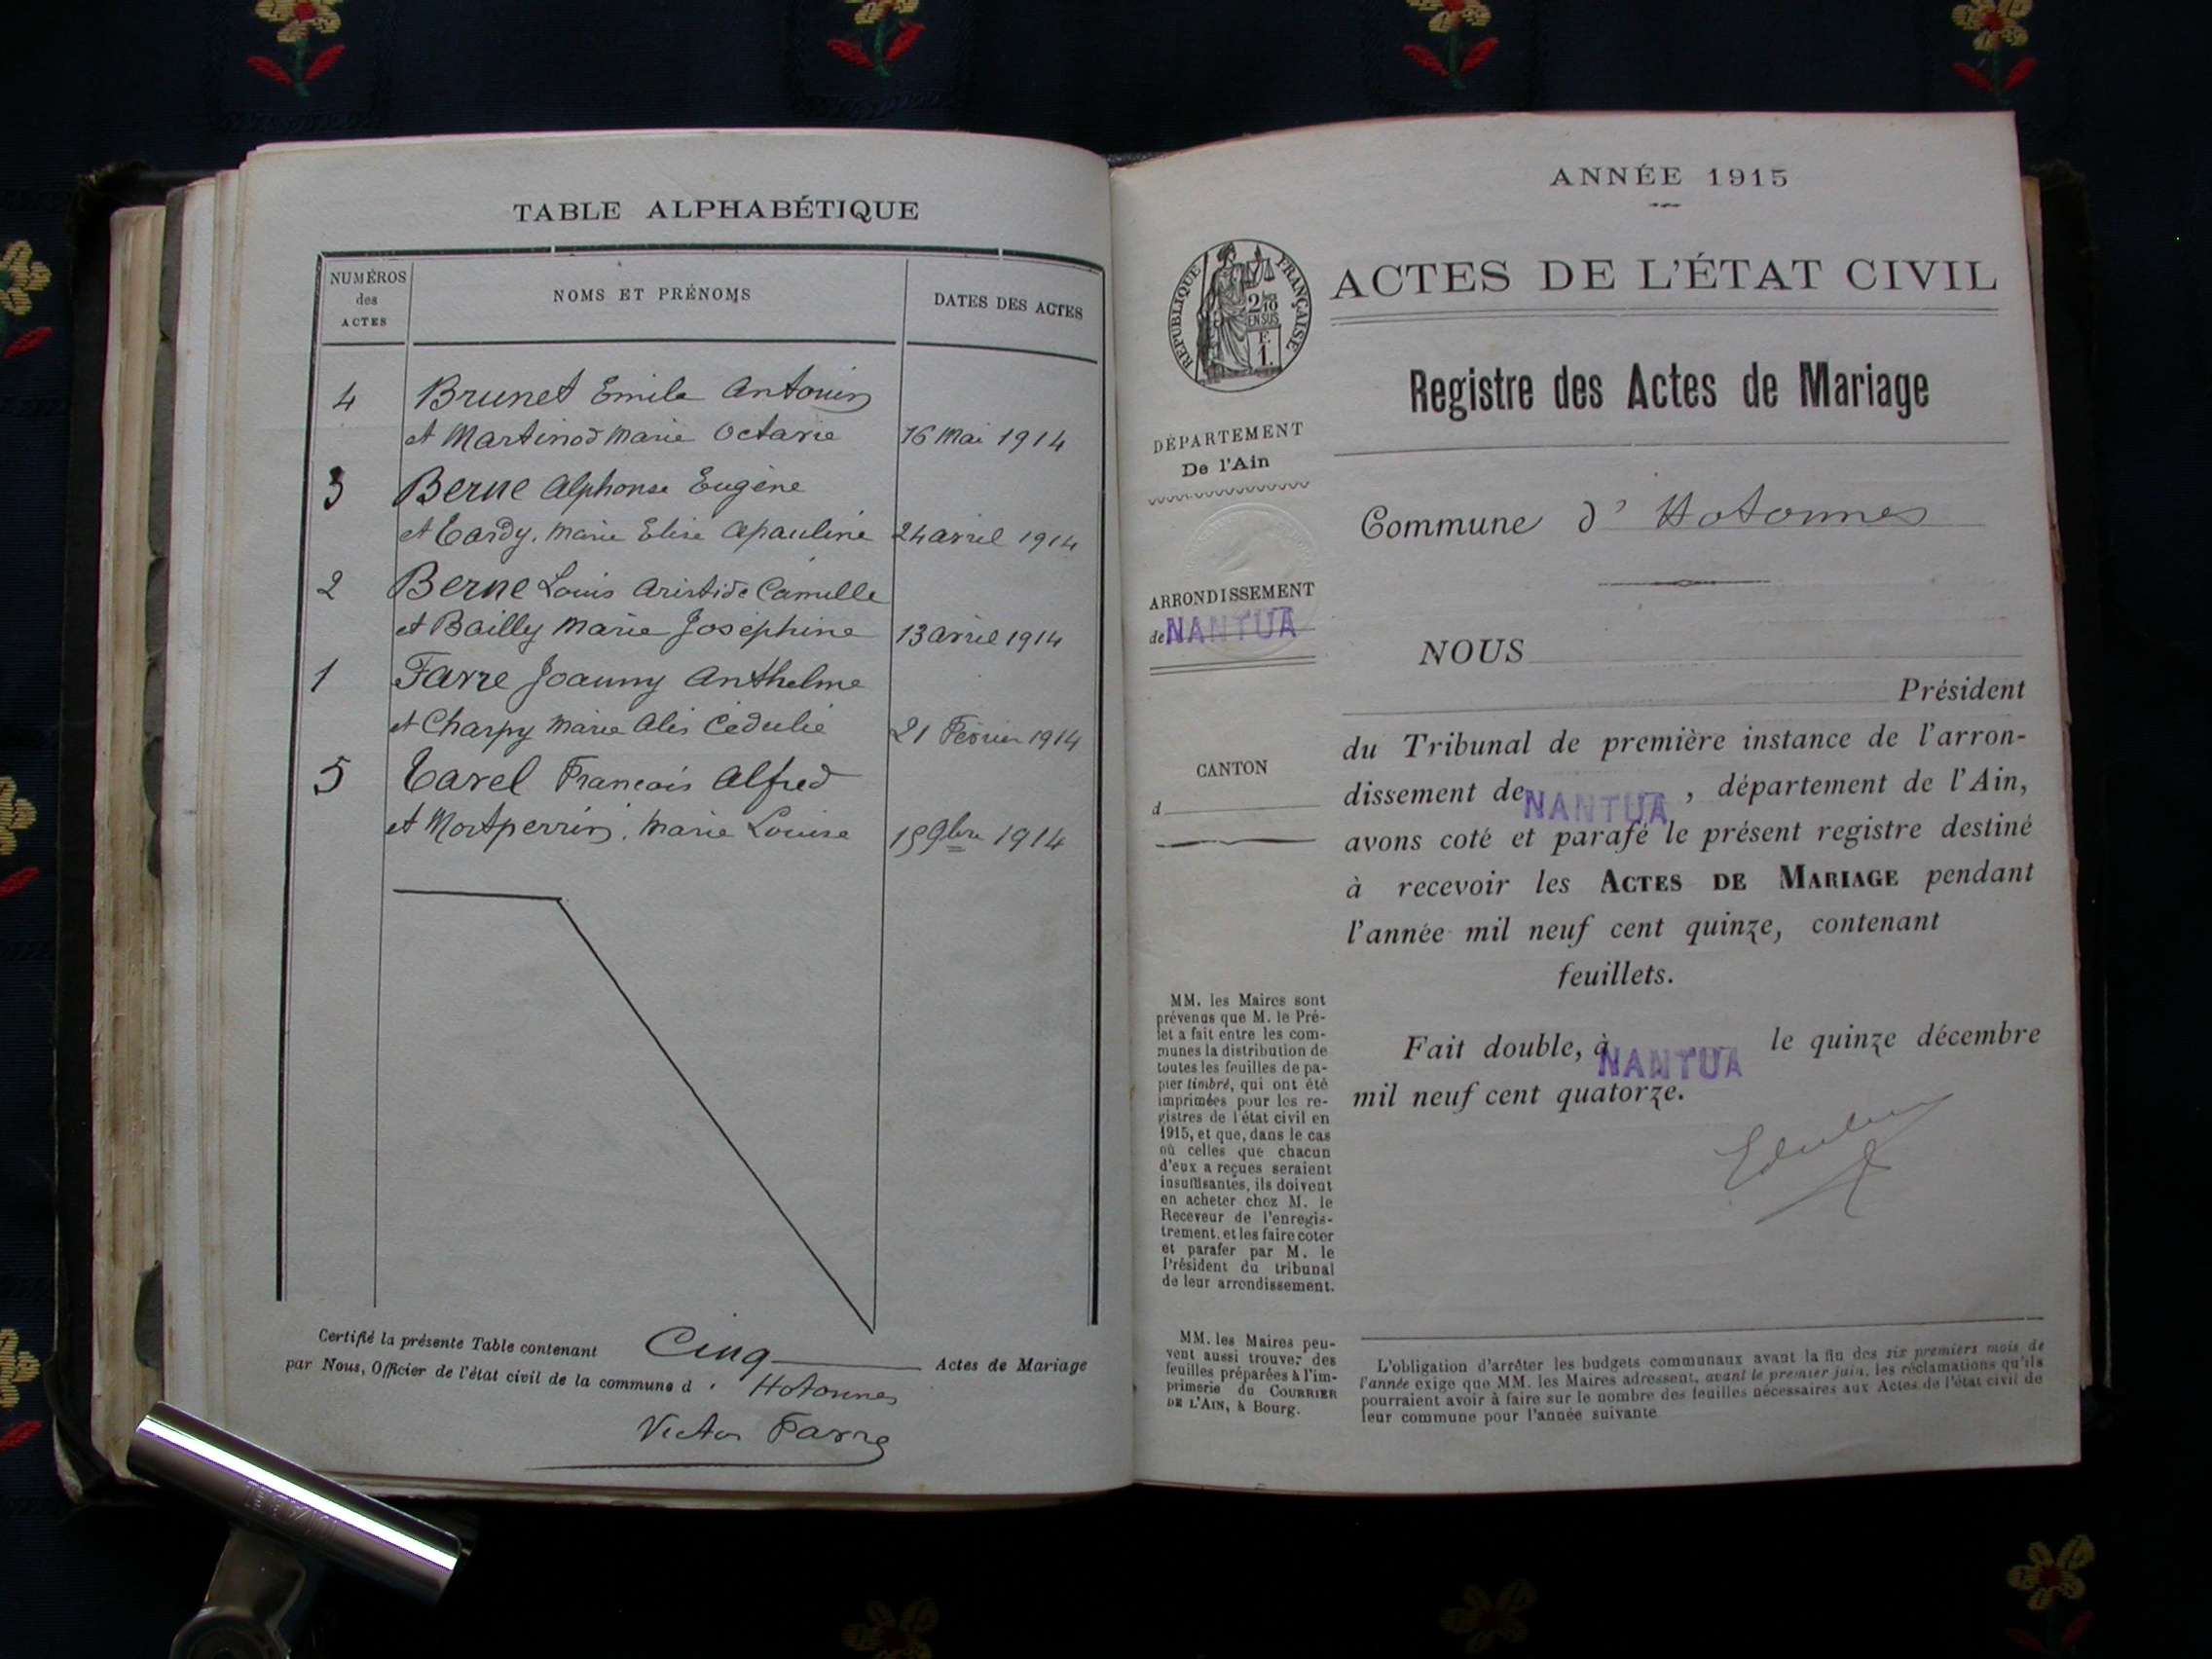 TABLE ALPHABÉTIQUE
NUMÉROS
des
ACTES
NOMS ET PRÉNOMS
DATES DES ACTES
4 Brunet Emile Antonin
et Martinod Marie Octavie 16 Mai 1914
3 Berne Alphonse Eugène
et Tardy. Marie Elise Apauline 24 avril 1914
2 Berne Louis Aristide Camille
et Bailly Marie Joséphine 13 avril 1914
1 Farre Joanny Anthelme
et Charpy Marie Alis Cédulie 21 Février 1914
5 Tavel Francois Alfred
et Montperrin. Marie Louise 15 9bre 1914
Certifié la présente Table contenant Cinq Actes de Mariage
par Nous, Officier de l'état civil de la commune d' Hotonnes
Victor Farre
ANNÉE 1915
RÉPUBLIQUE FRANÇAISE
2/10
EN SUS
F.
1.
ACTES DE L'ÉTAT CIVIL
Registre des Actes de Mariage
DÉPARTEMENT
De l'Ain
Commune d' Hotonnes
ARRONDISSEMENT
de NANTUA
CANTON
d
NOUS
Président
du Tribunal de première instance de l'arron-
dissement de NANTUA , département de l'Ain,
avons coté et parafé le présent registre destiné
à recevoir les ACTES DE MARIAGE pendant
l'année mil neuf cent quinze, contenant
feuillets.
Fait double, à NANTUA le quinze décembre
mil neuf cent quatorze.
MM. les Maires sont
prévenus que M. le Pré-
fet a fait entre les com-
munes la distribution de
toutes les feuilles de pa-
pier timbré, qui ont été
imprimées pour les re-
gistres de l'état civil en
1915, et que, dans le cas
où celles que chacun
d'eux a reçues seraient
insuffisantes, ils doivent
en acheter chez M. le
Receveur de l'enregis-
trement. et les faire coter
et parafer par M. le
Président du tribunal
de leur arrondissement.
MM. les Maires peu-
vent aussi trouver des
feuilles préparées à l'im-
primerie du COURRIER
DE L'AIN, à Bourg.
L'obligation d'arrêter les budgets communaux avant la fin des six premiers mois de
l'année exige que MM. les Maires adressent, avant le premier juin, les réclamations qu'ils
pourraient avoir à faire sur le nombre des feuilles nécessaires aux Actes de l'état civil de
leur commune pour l'année suivante